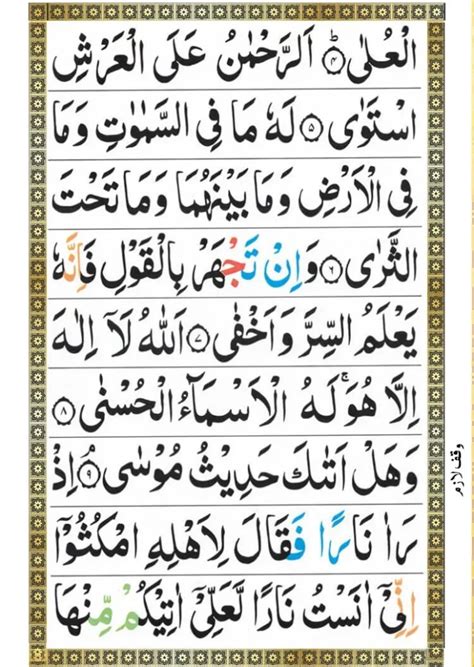 الْعُلٰى ۝۴ اَلرَّحْمٰنُ عَلَى الْعَرْشِ
اسْتَوٰى ۝۵ لَهٗ مَا فِى السَّمٰوٰتِ وَمَا
فِى الْاَرْضِ وَمَا بَيْنَهُمَا وَمَا تَحْتَ
الثَّرٰى ۝۶ وَاِنْ تَجْهَرْ بِالْقَوْلِ فَاِنَّهٗ
يَعْلَمُ السِّرَّ وَاَخْفٰى ۝۷ اَللّٰهُ لَاۤ اِلٰهَ
اِلَّا هُوَ ؕ لَهُ الْاَسْمَآءُ الْحُسْنٰى ۝۸
وَهَلْ اَتٰىكَ حَدِيْثُ مُوْسٰى ۝۹ اِذْ
رَاٰ نَارًا فَقَالَ لِاَهْلِهِ امْكُثُوْۤا
اِنِّىْۤ اٰنَسْتُ نَارًا لَّعَلِّىْۤ اٰتِيْكُمْ مِّنْهَا
وقف لازم